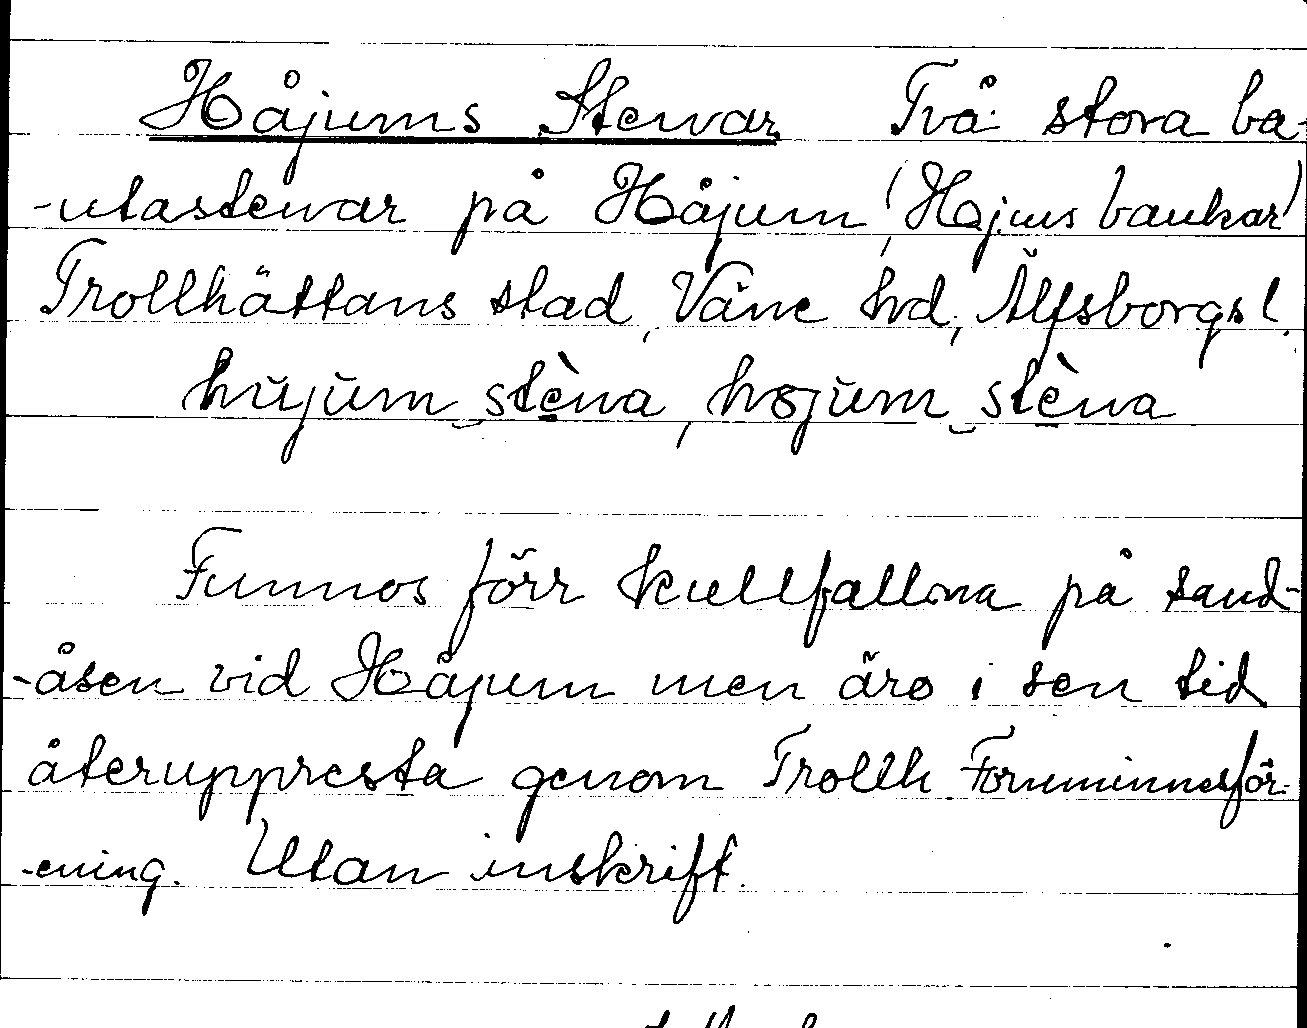 Håjums Stenar Två stora ba-
-utastenar på Håjum (Hojms bankar)
Trollhättans stad, Väne hd, Älfsborgs l.
hŭjŭm stèna, hojŭm stèna
Funnos förr kullfallna på sand-
-åsen vid Håjum men äro i sen tid
återuppresta genom Trollh Fornminnesför-
-ening. Utan inskrift.